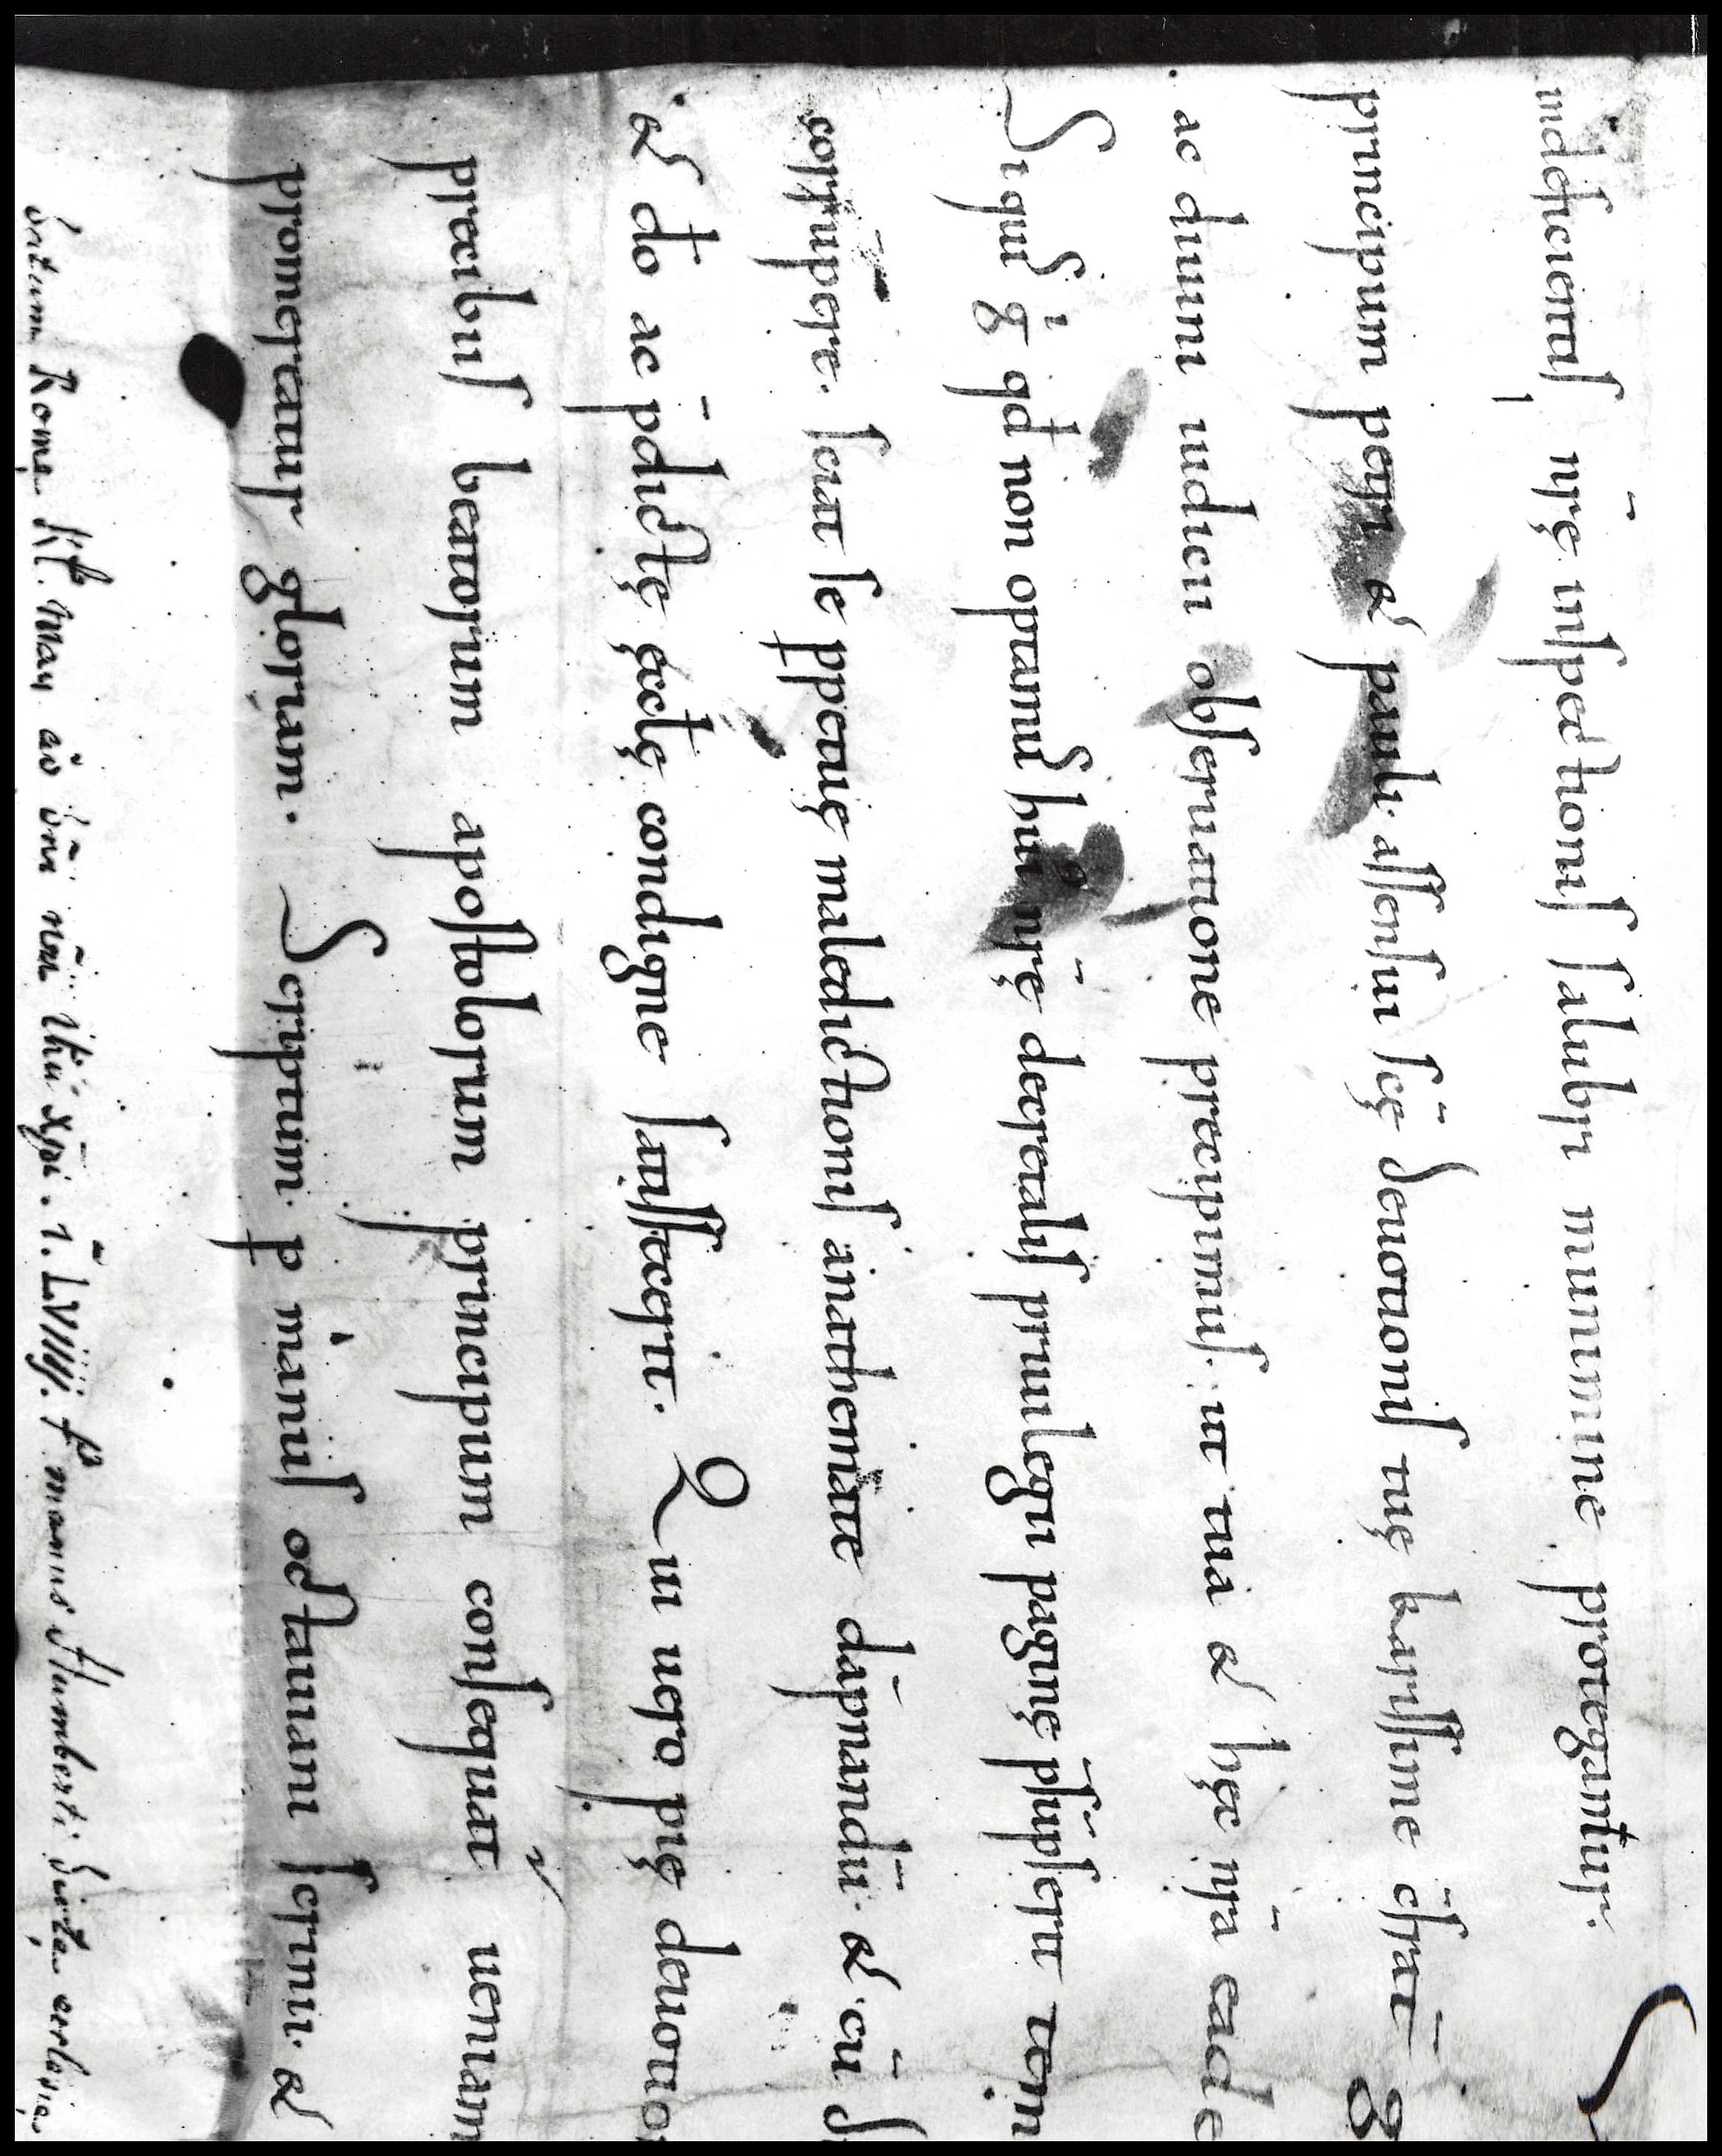 indeficientis nr̄ę inspectionis salubri munimine protegantur.
principum petri & pauli. assensui sc̄ę deuotionis tuę karissime c̄frat̄
ac diuini iudicii obseruatione precipimus. ut tua & hęc nr̄a eade
Siquis g qđ non optamus hui nr̄ę decretalis priuilegii paginę
corrūpere. sciat se ꝑpetuę maledictionis anathemate dāpnandū. & cū
& đo ac p̄dictę ęccłę condigne satisfecerit. Qui uero pię deuotio
precibus beatorum apostolorum principum consequat ueniam
promereatur gloriam. Scriptum ꝑ manus octauiani scrinii. &
Datum Romę kł. mai. ab dn̄i nr̄i ihū xp̄i. ꝑ manus Humberti dictę ecclesię